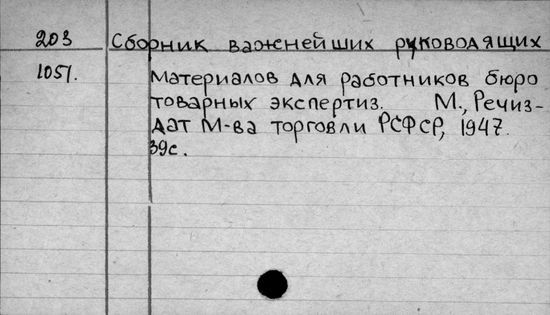 203 Сборник важнейших руководящих
1051. материалов для работников бюро
товарных экспертиз. М., Речиз-
дат М-ва торговли РСФСР, 1947.
39с.